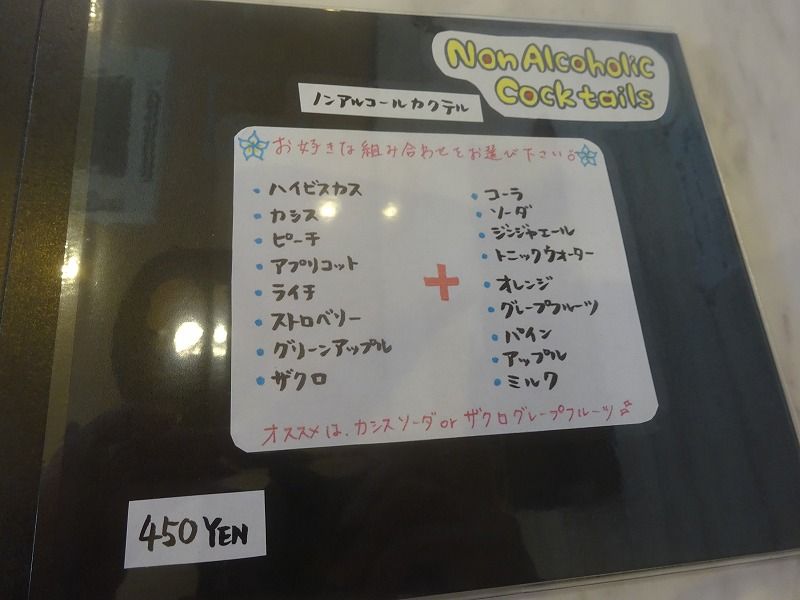 Non Alcoholic
Cocktails
ノンアルコールカクテル
お好きな組み合わせをお選び下さい。
・ハイビスカス
・カシス
・ピーチ
・アプリコット
・ライチ
・ストロベリー
・グリーンアップル
・ザクロ
+
・コーラ
・ソーダ
・ジンジャエール
・トニックウォーター
・オレンジ
・グレープフルーツ
・パイン
・アップル
・ミルク
オススメは、カシスソーダ or ザクログレープフルーツ♬
450 YEN